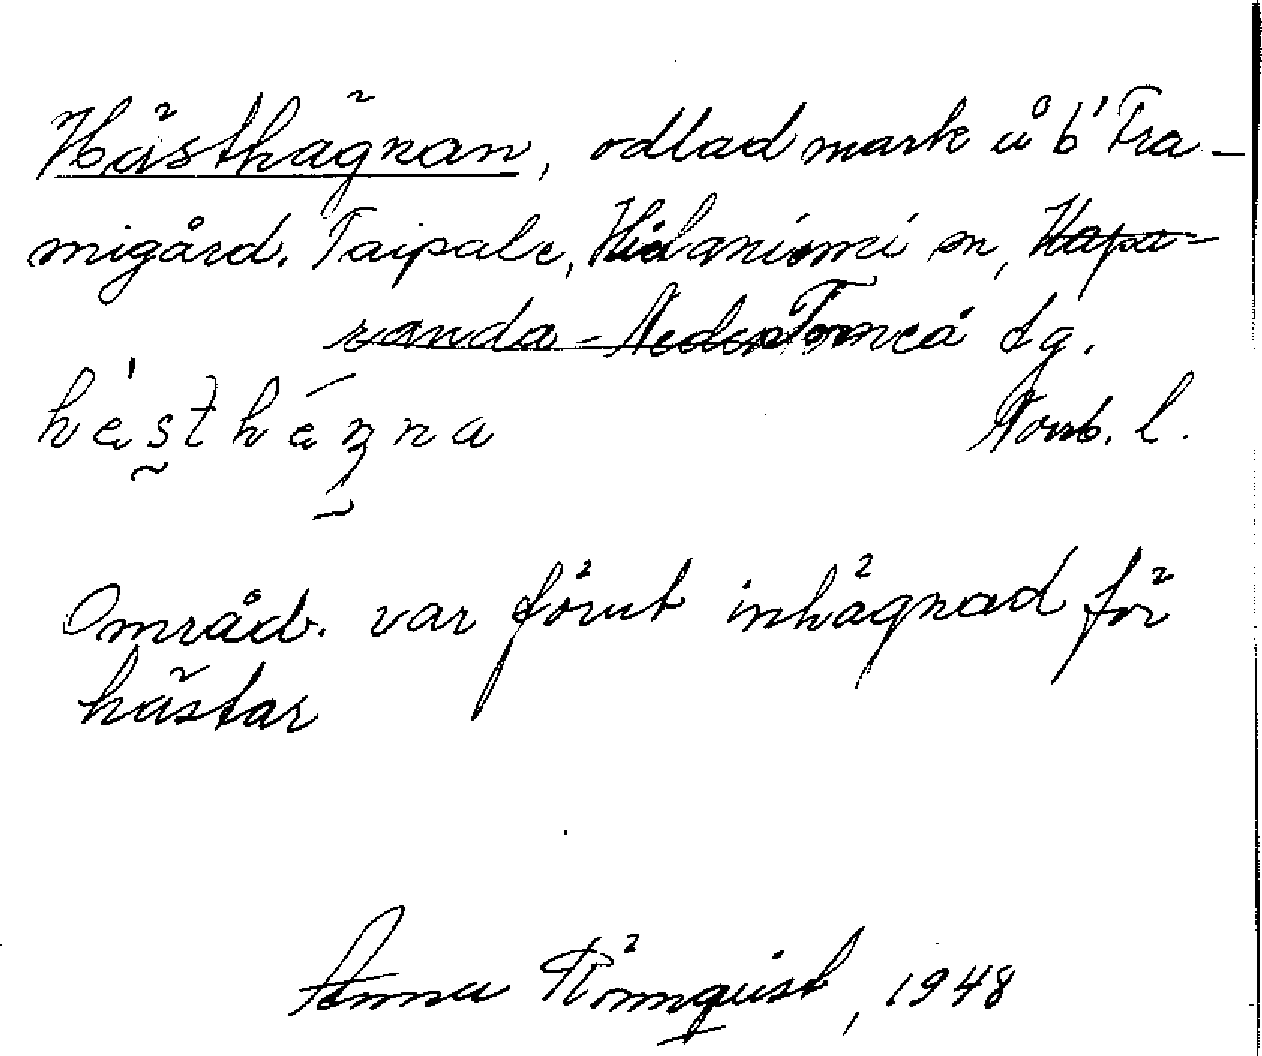 Hästhägnan, odlad mark å b' Fra-
migård. Taipale, Hietaniemi sn, Hapa-
randa - Neder Torneå dg.
hästhägna Norrb. l.
Områd. var förut inhägnad för
hästar
Anna Rönnquist, 1948